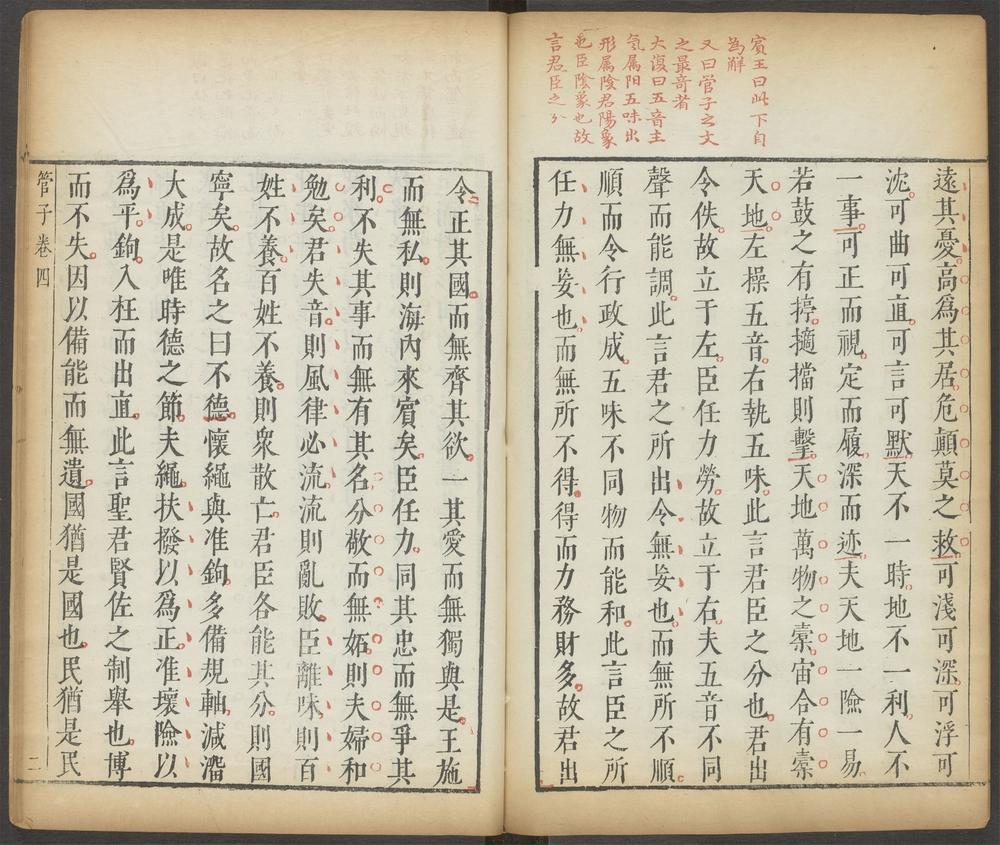 賓王曰此下自
為解
又曰管子之文
之最奇者
大復曰五音主
氣属阳五味出
形属陰君陽象
也臣陰象也故
言君臣之分
遠其憂高爲其居危顛莫之救可淺可深可浮可
沈可曲可直可言可默天不一時地不一利人不
一事可正而視定而履深而迹夫天地一險一易
若鼓之有𢴤擿擋則擊天地萬物之橐宙合有橐
天地左操五音右執五味此言君臣之分也君出
令佚故立于左臣任力勞故立于右夫五音不同
聲而能調此言君之所出令無妄也而無所不順
順而令行政成五味不同物而能和此言臣之所
任力無妄也而無所不得得而力務財多故君出
令正其國而無齊其欲一其愛而無獨與是王施
而無私則海內來賓矣臣任力同其忠而無爭其
利不失其事而無有其名分敬而無妬則夫婦和
勉矣君失音則風律必流流則亂敗臣離味則百
姓不養百姓不養則衆散亡君臣各能其分則國
寧矣故名之曰不德懷繩與准鉤多備規軸減溜
大成是唯時德之節夫繩扶撥以爲正准壞險以
爲平鉤入枉而出直此言聖君賢佐之制舉也博
而不失因以備能而無遺國猶是國也民猶是民
管子卷四
二